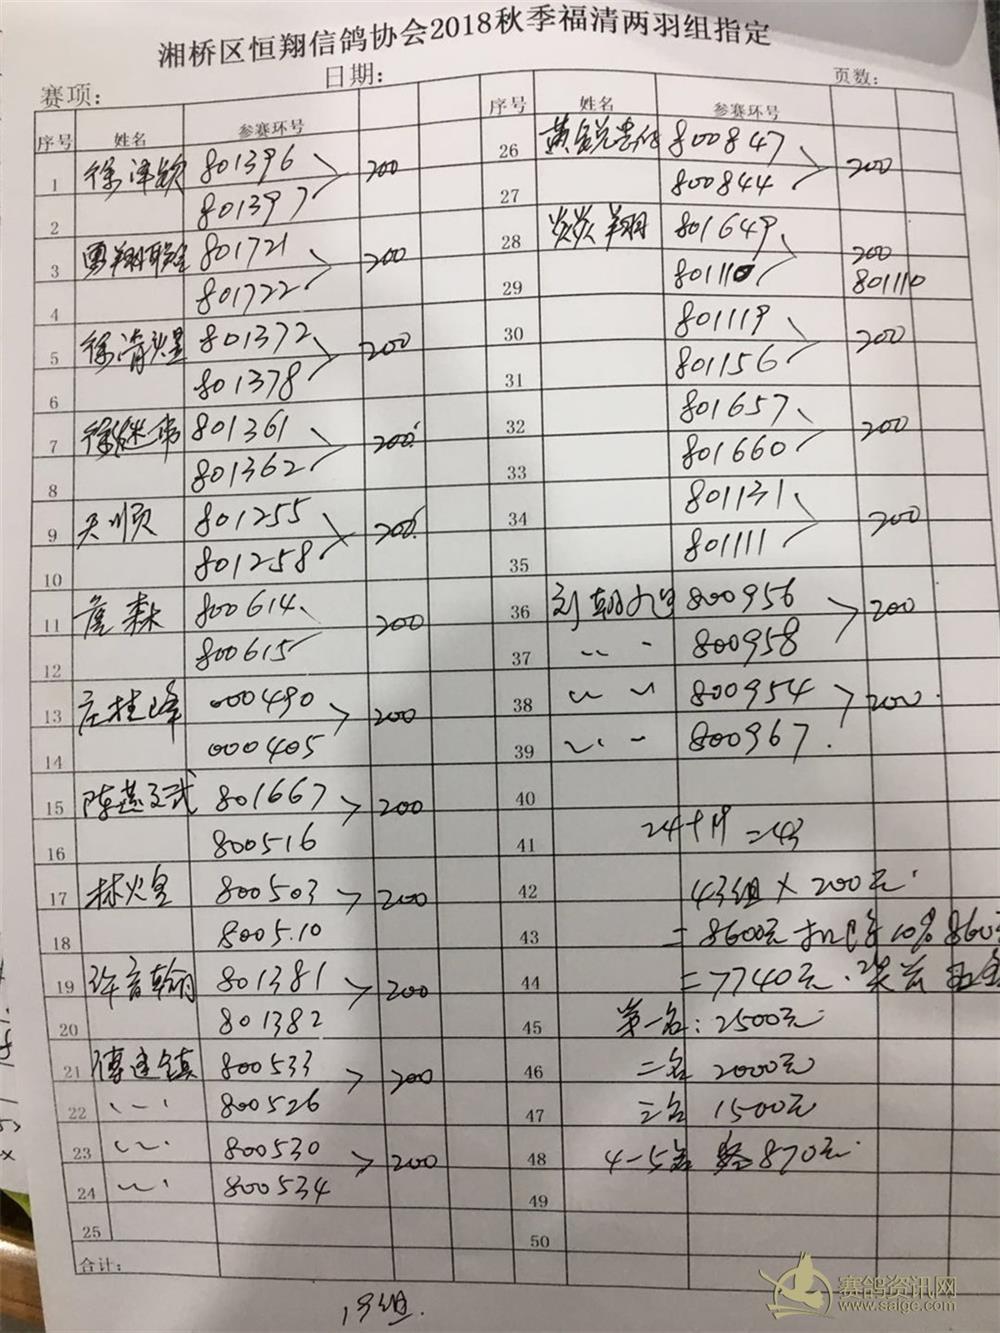 湘桥区恒翔信鸽协会2018秋季福清两羽组指定
赛项: 日期: 页数:
序号 姓名 参赛环号
1 徐泽钦 801396 200
2 801397
3 勇翔联盟 801721 200
4 801722
5 徐清煌 801372 200
6 801378
7 徐继伟 801361 200
8 801362
9 天顺 801255 200
10 801258
11 詹森 800614 200
12 800615
13 庄桂峰 000490 200
14 000405
15 陈燕文武 801667 200
16 800516
17 林火星 800503 200
18 800510
19 许音翰 801381 200
20 801382
21 傅建镇 800533 200
22 800526
23 800530 200
24 800534
25
合计:
序号 姓名 参赛环号
26 黄锐 800847 200
27 800844
28 炎炎翔 801649 200
29 801110 801110
30 801119 200
31 801156
32 801657 200
33 801660
34 801131 200
35 801111
36 刘朝 800956 200
37 800958
38 800954 200
39 800967
40
41 24+19=43
42 43组×200元
43 =8600元扣除10%860
44 =7740元.奖
45 第一名:2500元
46 二名 2000元
47 三名 1500元
48 4-5名 870元
49
50
19组.
赛鸽资讯网
www.saigc.com